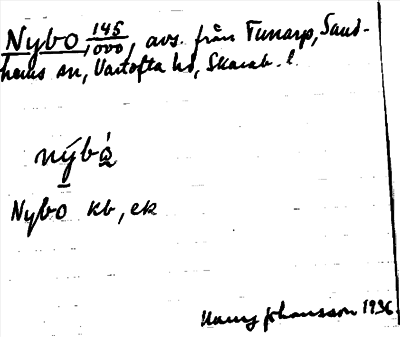 Nybo 145/1000, avs. från Tunarp, Sand-
hems sn, Vartofta hd, Skarab. l.
nýbò̱
Nybo kb, ek
Harry Johansson 1936.